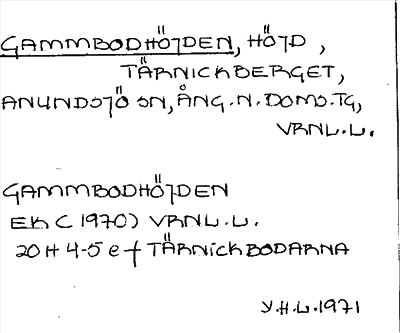 GAMMBODHÖJDEN, HÖJD,
TÄRNICKBERGET,
ANUNDSJÖ SN, ÅNG.N.DOMS.TG,
VRNL.L.
GAMMBODHÖJDEN
EK (1970) VRNL.L.
20H 4-5 e f TÄRNICKBODARNA
Y.H.L.1971